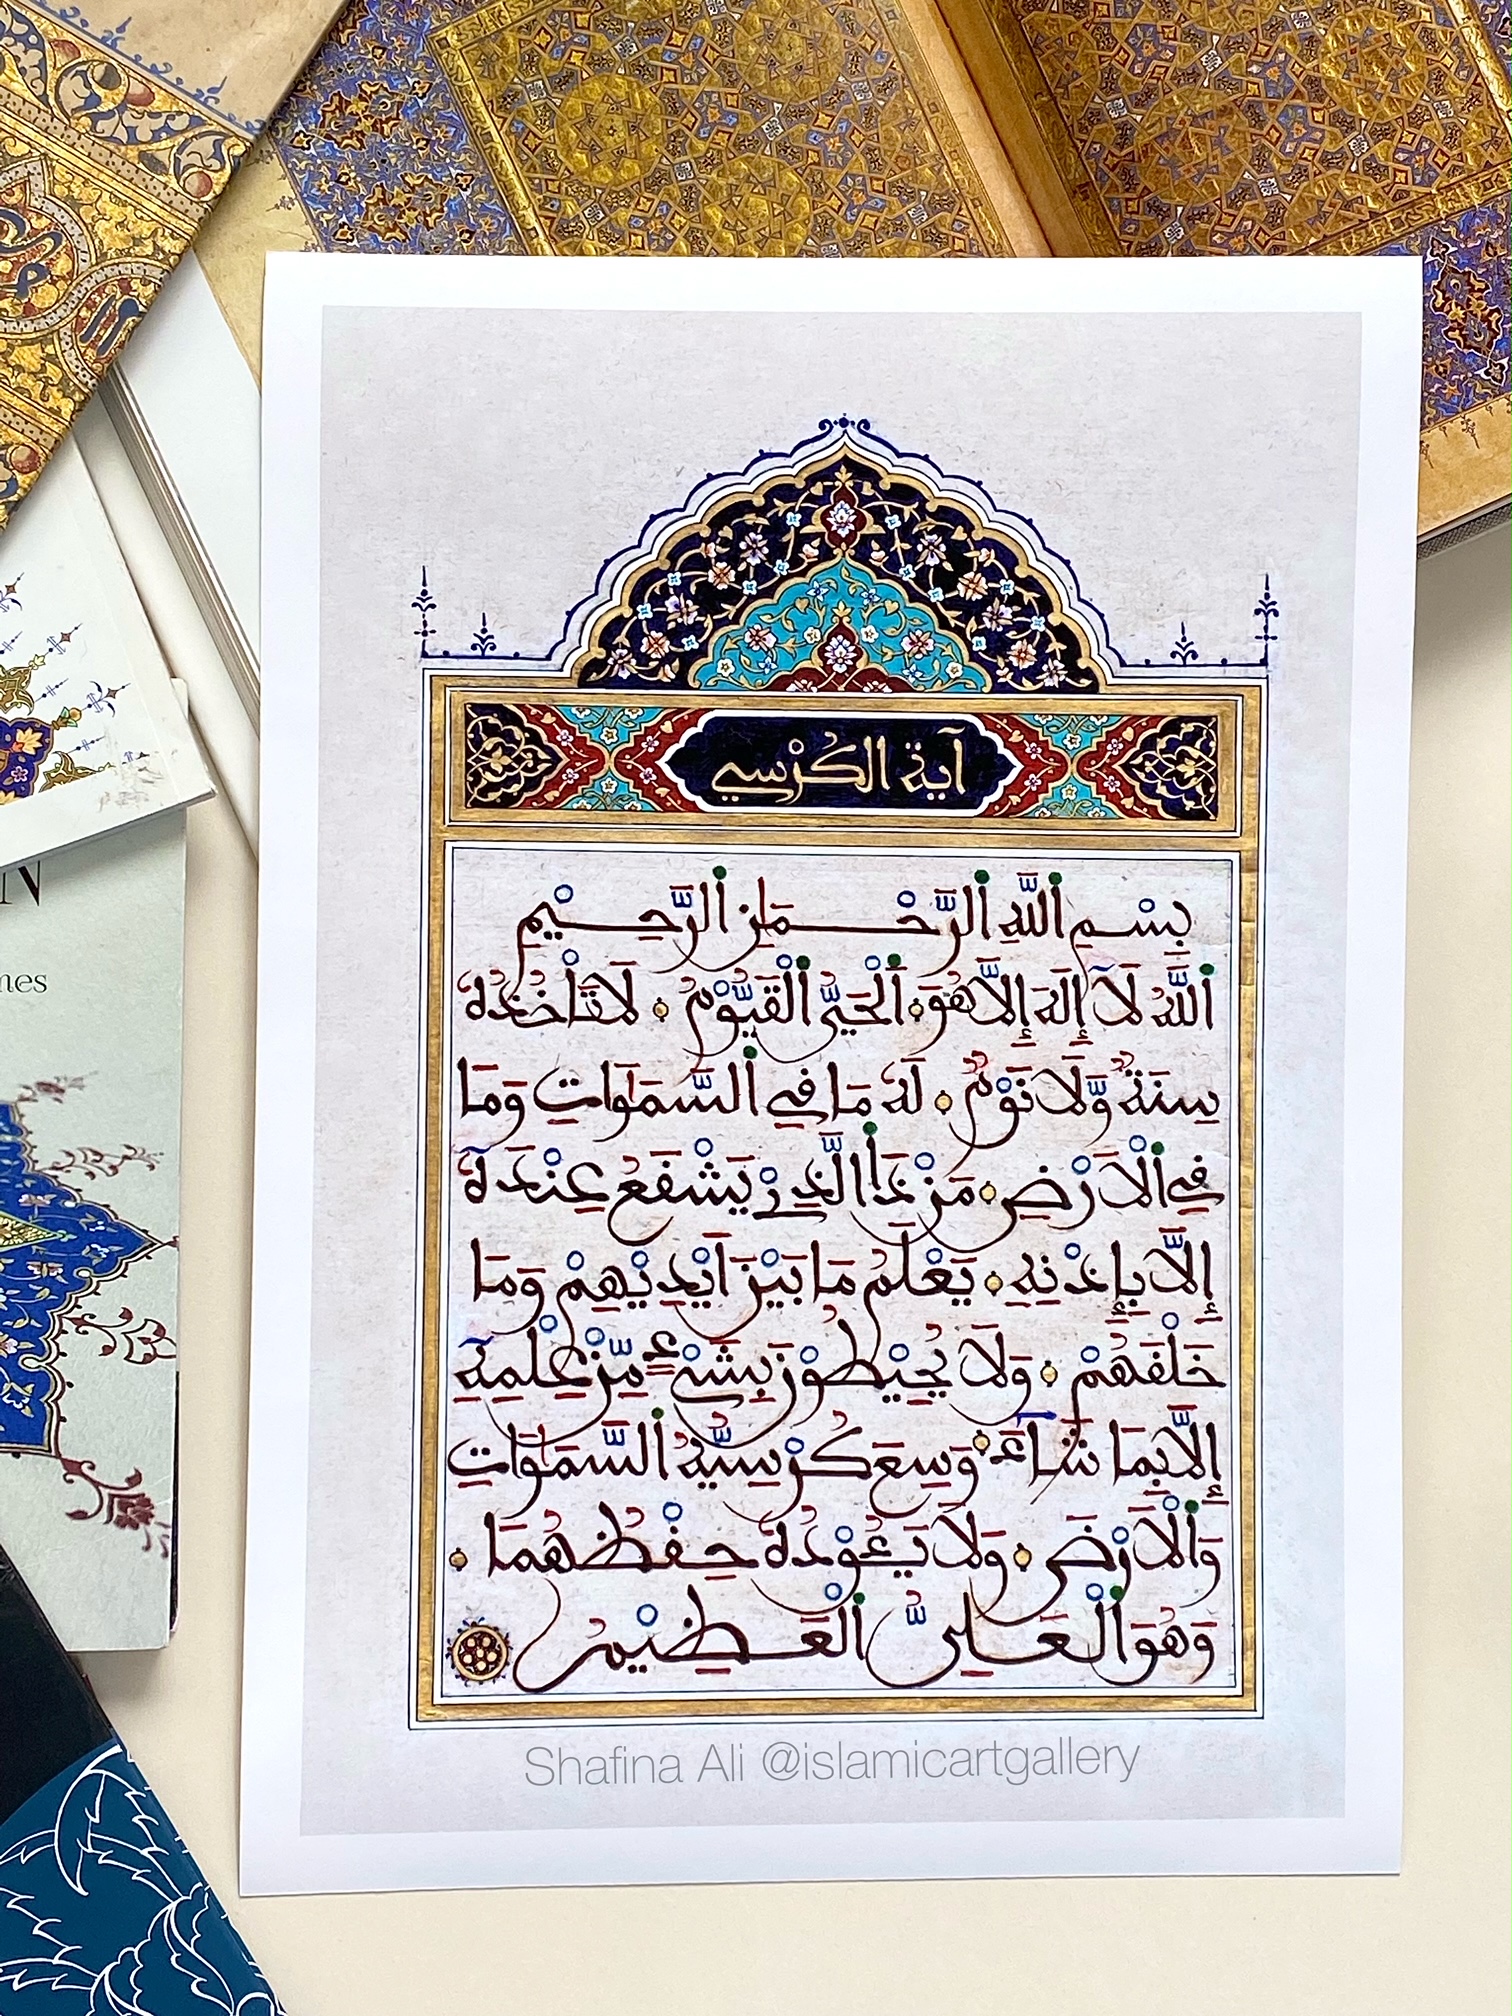 آية الكُرْسي
بِسْمِ اللَّهِ الرَّحْمَٰنِ الرَّحِيْمِ
اَللَّهُ لَآ إِلَهَ إِلَّا هُوَ ۰ اَلْحَيُّ الْقَيُّوْمُ ۰ لَا تَأْخُذُهُ
سِنَةٌ وَّلَا نَوْمٌ ۰ لَهُ مَا فِي السَّمَوَاتِ وَمَا
فِي الْاَرْضِ ۰ مَنْ ذَا الَّذِيْ يَشْفَعُ عِنْدَهُ
إِلَّا بِإِذْنِهِ ۰ يَعْلَمُ مَا بَيْنَ اَيْدِيْهِمْ وَمَا
خَلْفَهُمْ ۰ وَلَا يُحِيْطُوْنَ بِشَيْءٍ مِّنْ عِلْمِهِ
إِلَّا بِمَا شَآءَ ۰ وَسِعَ كُرْسِيُّهُ السَّمَوَاتِ
وَالْاَرْضَ ۰ وَلَا يَئُوْدُهُ حِفْظُهُمَا ۰
وَهُوَ الْعَلِيُّ الْعَظِيْمُ
Shafina Ali @islamicartgallery